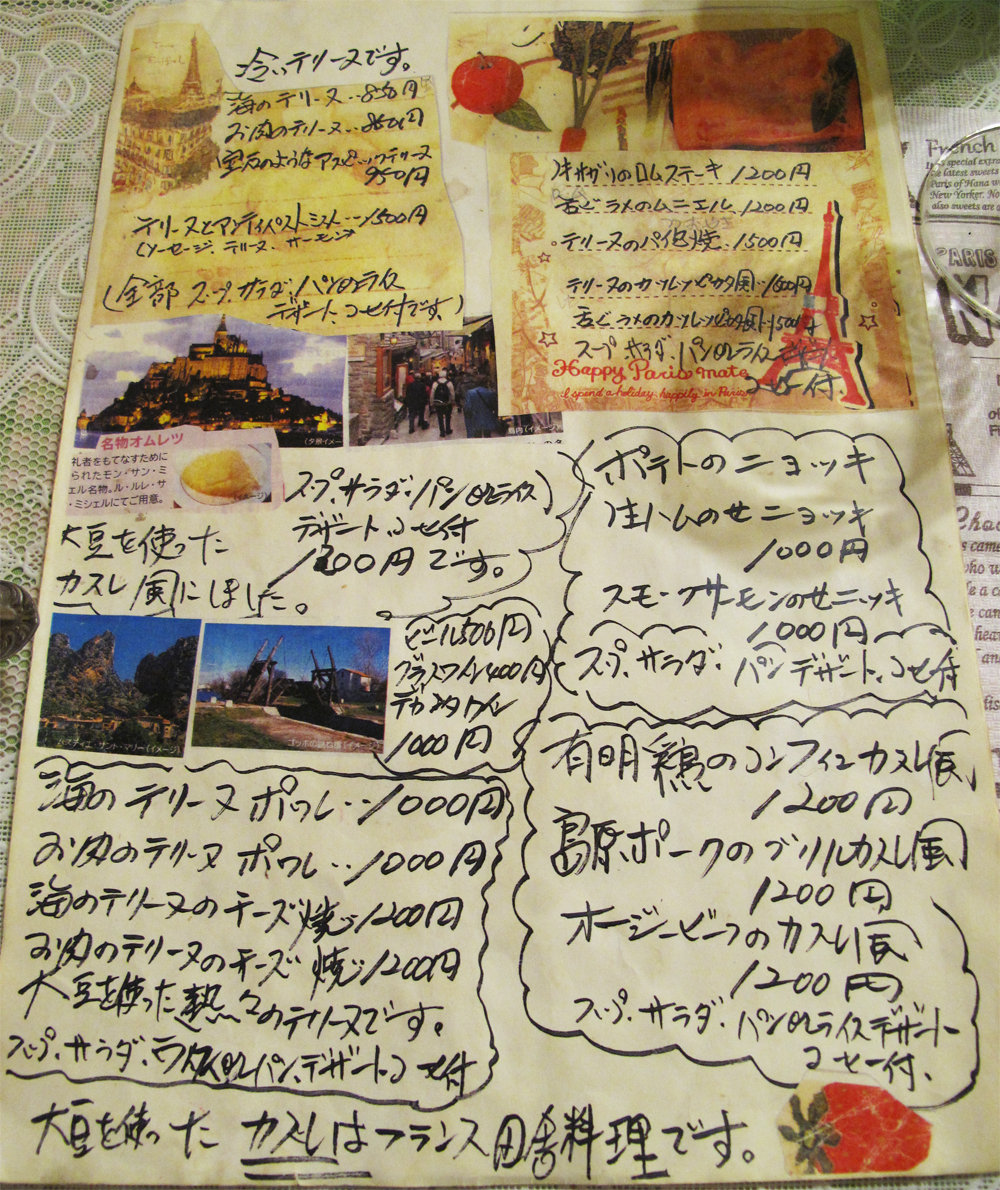 冷いテリーヌです。
海のテリーヌ‥850円
お肉のテリーヌ‥850円
宝石のようなアスピックテリーヌ
950円
テリーヌとアンティパストミスト‥1500円
(ソーセージ、テリーヌ、サーモン)
(全部 スープ、サラダ、パンorライス
デザート、コーヒー付です。)
ロムステーキ 1200円
舌ビラメのムニエル 1200円
テリーヌのパイ包焼 1500円
テリーヌのカツレツピカタ風 1500円
舌ビラメのカツレツピカタ風 1500円
スープ サラダ、パンorライス デザート
コーヒー付
Happy Paris mate
I spend a holiday happily in Paris
名物オムレツ
礼者をもてなすために
られたモン・サン・ミ
ェル名物。ル・ルレ・サ
・ミシェルにてご用意。
スープ、サラダ、パンorライス
デザート、コーヒー付
1200円です。
大豆を使った
カスレ風にしました。
ポテトのニョッキ
生ハムのせニョッキ
1000円
スモークサーモンのせニョッキ
1000円
スープ、サラダ、パン デザート、コーヒー付
ビール500円
グラスワイン400円
デカンタワイン
1000円
ゴッホの跳ね橋(イメージ)
海のテリーヌ ポワレ‥1000円
お肉のテリーヌ ポワレ‥1000円
海のテリーヌのチーズ焼‥1200円
お肉のテリーヌのチーズ焼‥1200円
大豆を使った熱々のテリーヌです。
スープ、サラダ、ライスorパン、デザート、コーヒー付
有明鶏のコンフィ カスレ風
1200円
島原ポークのグリル カスレ風
1200円
オージービーフのカスレ風
1200円
スープ、サラダ、パンorライス デザート
コーヒー付、
大豆を使った カスレはフランス田舎料理です。
French
PARIS